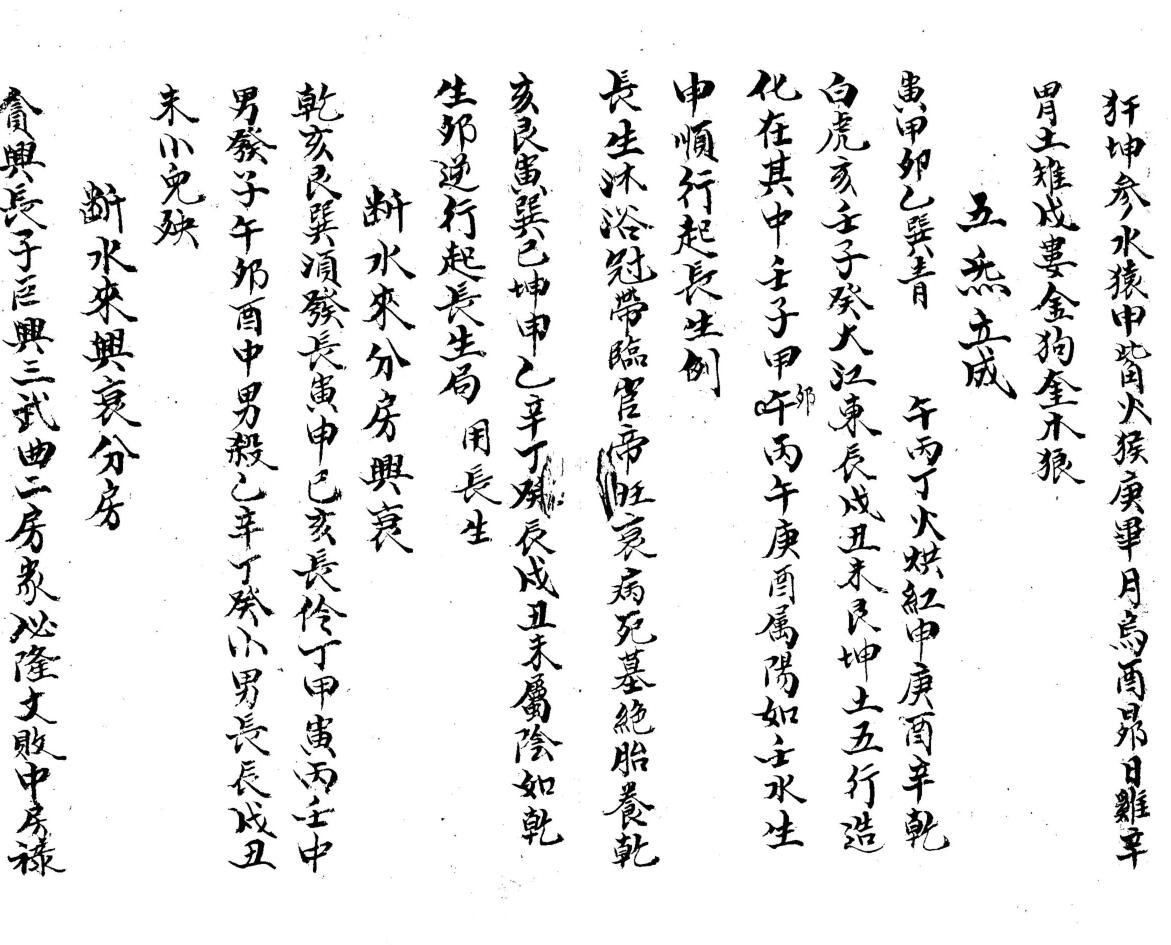 犴坤参水猿申觜火猴庚畢月烏酉昴日雞辛
胃土雉戌婁金狗奎木狼
五炁立成
寅甲卯乙巽青 午丙丁火烘紅申庚酉辛乾
白虎亥壬子癸大江東辰戌丑未艮坤土五行造
化在其中壬子甲卯午丙午庚酉属陽如壬水生
申順行起長生例
長生沐浴冠帶臨官帝旺衰病死墓絶胎養乾
亥艮寅巽巳坤申乙辛丁癸辰戌丑未屬陰如乾
生卯逆行起長生局 用長生
断水來分房興衰
乾亥艮巽須發長寅申巳亥長伶丁甲寅丙壬中
男發子午卯酉中男殺乙辛丁癸小男長辰戌丑
未小兒殃
断水來興衰分房
貪興長子巨興三武曲二房家必隆文敗中房祿